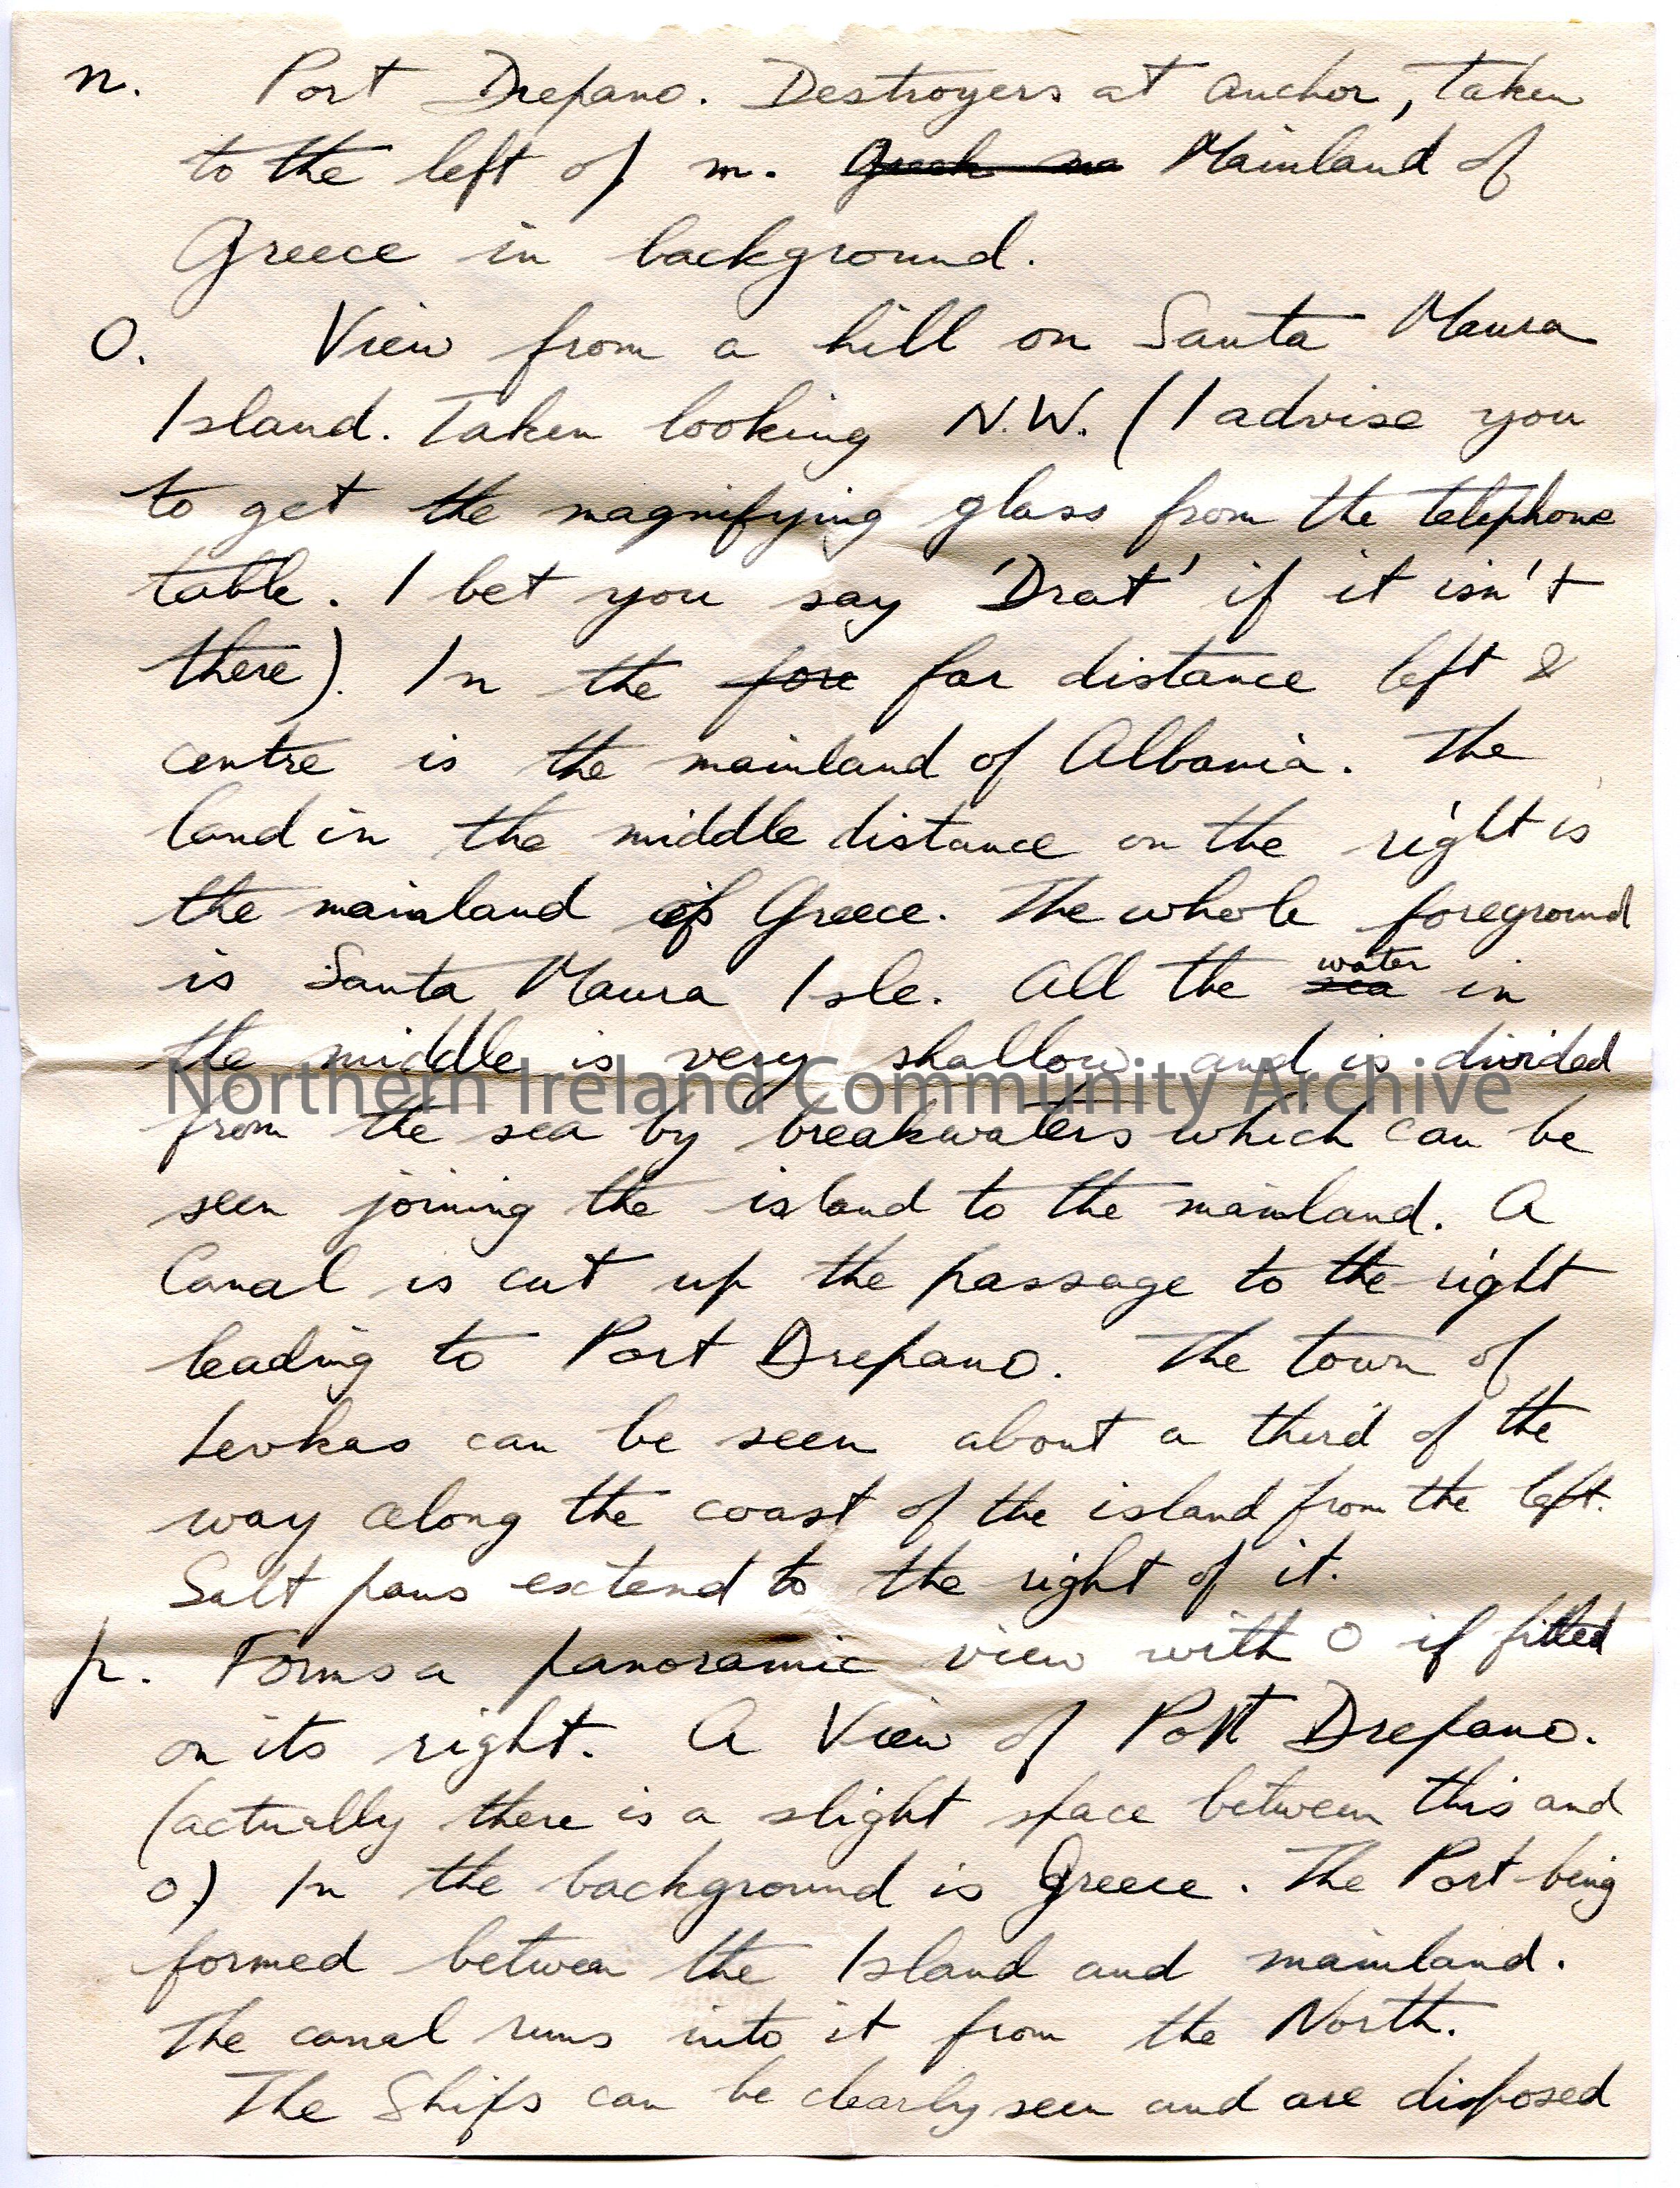 n. Port Drepano. Destroyers at anchor, taken
to the left of m. Greek ma Mainland of
Greece in background.
O. View from a hill on Santa Maura
Island. Taken looking N.W. (I advise you
to get the magnifying glass from the telephone
table. I bet you say 'Drat' if it isn't
there). In the fore far distance left &
centre is the mainland of Albania. The
land in the middle distance on the right is
the mainland of Greece. The whole foreground
is Santa Maura Isle. All the sea water in
the middle is very shallow and is divided
Northern Ireland Community Archive
from the sea by breakwaters which can be
seen joining the island to the mainland. A
Canal is cut up the passage to the right
leading to Port Drepano. The town of
Levkas can be seen about a third of the
way along the coast of the island from the left.
Salt pans extend to the right of it.
p. Forms a panoramic view with O if fitted
on its right. A View of Port Drepano.
(actually there is a slight space between this and
o) In the background is Greece. The Port being
formed between the Island and mainland.
The canal runs into it from the North.
The Ships can be clearly seen and are disposed